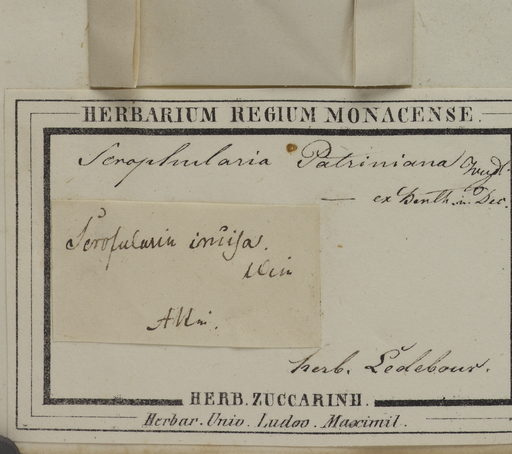 HERBARIUM REGIUM MONACENSE.
Scrophularia Patriniana Wydl.
— ex Benth. in Dec.
Scrofularia incisa.
Altai.
herb. Ledebour.
HERB. ZUCCARINII.
Herbar. Univ. Ludov. Maximil.